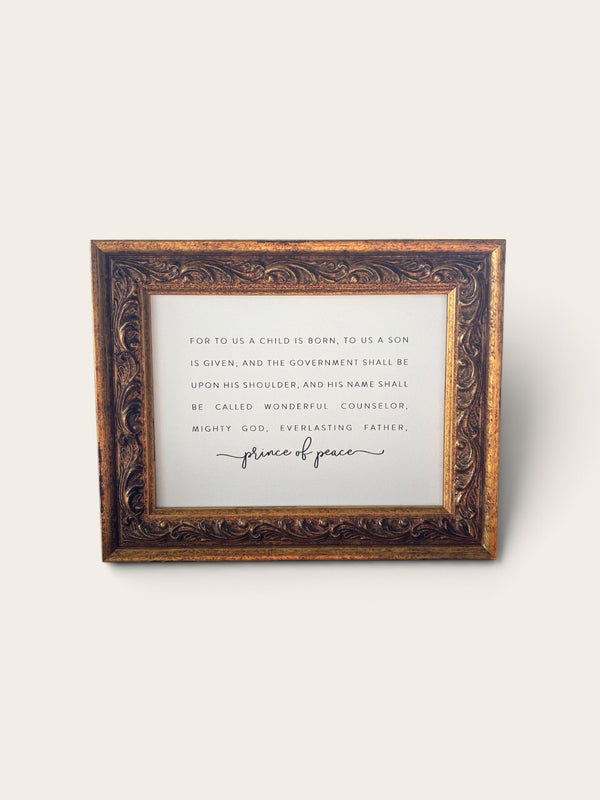 FOR TO US A CHILD IS BORN, TO US A SON
IS GIVEN; AND THE GOVERNMENT SHALL BE
UPON HIS SHOULDER, AND HIS NAME SHALL
BE CALLED WONDERFUL COUNSELOR,
MIGHTY GOD, EVERLASTING FATHER,
prince of peace